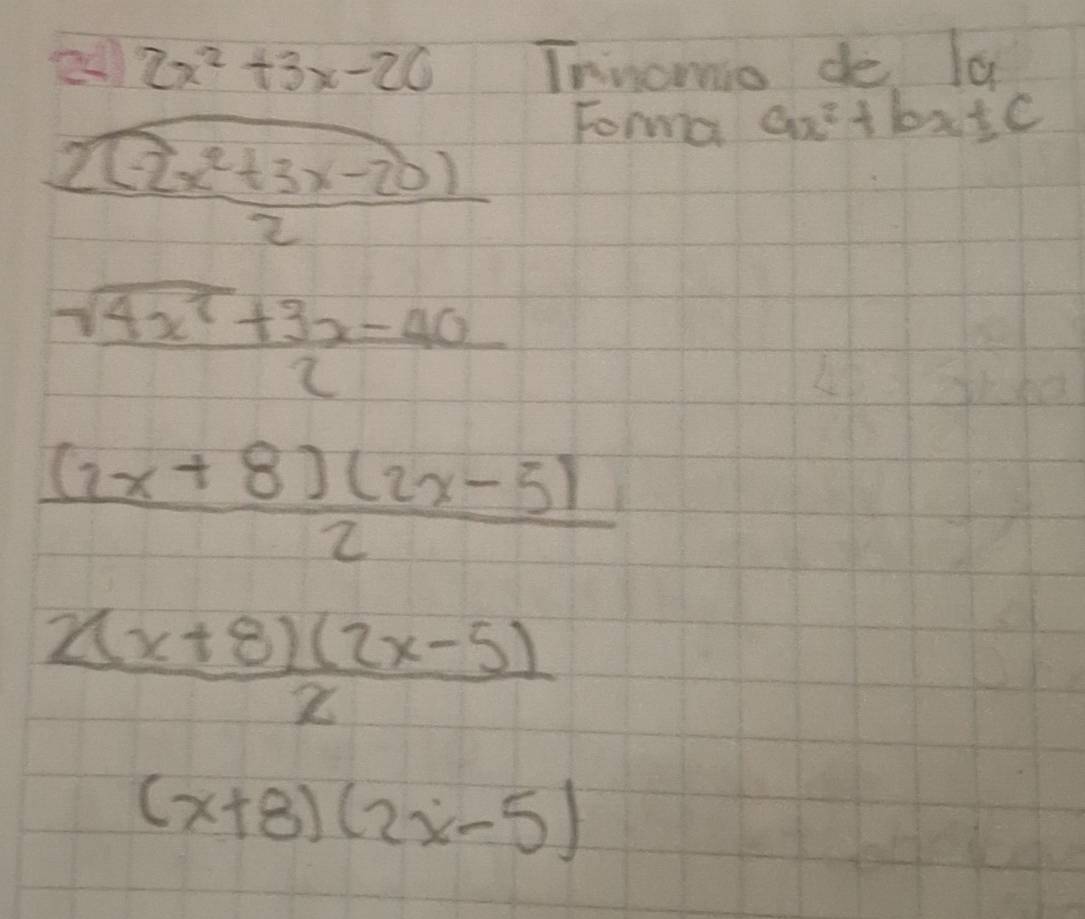 24) 2x² + 3x - 20 Trinomio de la
Forma ax² + bx ± c
2(2x² + 3x - 20)
2
√4x² + 3x - 40
2
(2x + 8)(2x - 5)
2
2(x + 8)(2x - 5)
2
(x+8)(2x-5)